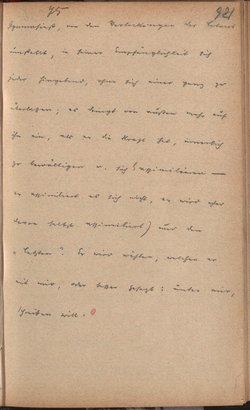 95
921
von den Verlockungen des Lebens
umstellt, in seiner Empfänglichkeit sich
jeder hingebend, ohne sich einer ganz zu
überlassen; es dringt von außen mehr auf
ihn ein, als er die Kraft hat, innerlich
zu bewältigen u. sich (assimilieren
er assimiliert es sich nicht, es wird eher
davon selbst assimiliert) und den
"letzten". Er wird wählen, welchen er
mit mir, oder besser gesagt: unter mir,
schreiben will.